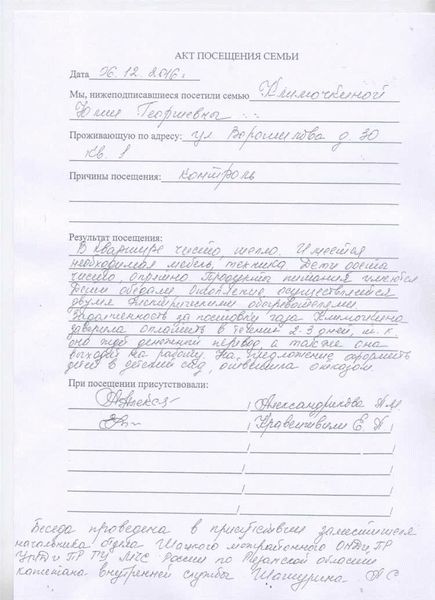 АКТ ПОСЕЩЕНИЯ СЕМЬИ
Дата 06.12.2016г
Мы, нижеподписавшиеся посетили семью Климочкиной
Юлии Георгиевны
Проживающую по адресу: ул Ворошилова д 30
кв. 1
Причины посещения: контроль
Результат посещения:
В квартире чисто, тепло. Имеется
необходимая мебель, техника. Дети одеты
чисто, опрятно. Продукты питания имеются
Дети обедали. Отопление осуществляется
двумя электрическими обогревателями
Задолженность за поставку газа Климочкина
заверила оплатить в течении 2-3 дней, т.к
она ждет денежный перевод, а так же она
выходит на работу. На предложение оформить
детей в детский сад, ответила отказом
При посещении присутствовали:
/ Александрикова А.М
/ Кравешвили Е А /
Беседа проведена в присутствии заместителя
начальника отдела Шацкого межрайонного ОНДиПР
УНДиПР ГУ МЧС России по Рязанской области
капитана внутренней службы Шашурина А С